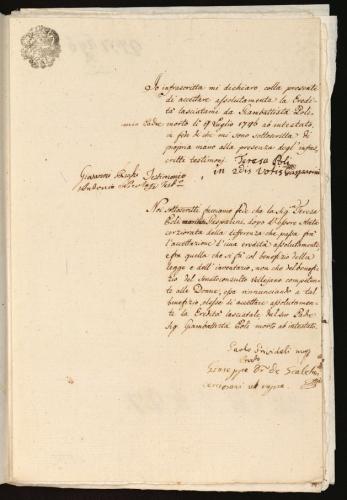 Io infrascritta mi dichiaro colla presente
di accettare assolutamente la Eredi-
tà lasciatami da Giambattista Poli
mio Padre morto li 19 Luglio 1796 ab intestato,
in fede di che mi sono sottoscritta di
propria mano alla presenza degl' infra-
scritti testimonj. Teresa Poli
in 2dis votis Gasparini
Giovanni Testimonio
Antonio
Noi sottoscritti facciamo fede che la Sigra Teresa
Poli Gasparini, dopo d'essere stata
cerziorata della differenza che passa fra
l'accettazione d'una eredità assolutamente,
e fra quella che si fà col benefizio della
legge e dell' inventario, non che del benefi-
zio del Senatoconsulto Vellejano competen-
te alle Donne, essa rinunciando a tal
benefizio, elesse di accettare assolutamen-
te la Eredità lasciatale dal suo Padre
Sig. Giambattista Poli morto ab intestato.
Carlo
Giuseppe
cerziorai ut supra.